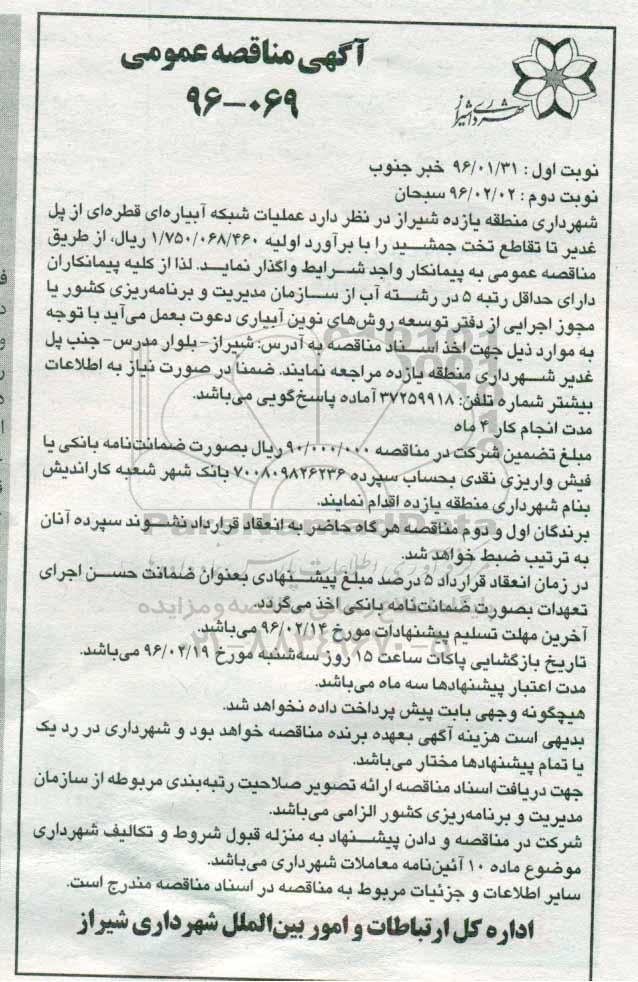 آگهی مناقصه عمومی
۹۶-۰۶۹
شهرداری شیراز
نوبت اول : ۹۶/۰۱/۳۱ خبر جنوب
نوبت دوم : ۹۶/۰۲/۰۲ سبحان
شهرداری منطقه یازده شیراز در نظر دارد عملیات شبکه آبیاره‌ای قطره‌ای از پل
غدیر تا تقاطع تخت جمشید را با برآورد اولیه ۱/۷۵۰/۰۶۸/۴۶۰ ریال، از طریق
مناقصه عمومی به پیمانکار واجد شرایط واگذار نماید. لذا از کلیه پیمانکاران
دارای حداقل رتبه ۵ در رشته آب از سازمان مدیریت و برنامه‌ریزی کشور یا
مجوز اجرایی از دفتر توسعه روش‌های نوین آبیاری دعوت بعمل می‌آید با توجه
به موارد ذیل جهت اخذ اسناد مناقصه به آدرس: شیراز- بلوار مدرس- جنب پل
غدیر شهرداری منطقه یازده مراجعه نمایند. ضمنا در صورت نیاز به اطلاعات
بیشتر شماره تلفن: ۳۷۲۵۹۹۱۸ آماده پاسخ‌گویی می‌باشد.
مدت انجام کار ۴ ماه
مبلغ تضمین شرکت در مناقصه ۹۰/۰۰۰/۰۰۰ ریال بصورت ضمانت‌نامه بانکی یا
فیش واریزی نقدی بحساب سپرده ۷۰۰۸۰۹۸۲۶۲۳۶ بانک شهر شعبه کاراندیش
بنام شهرداری منطقه یازده اقدام نمایند.
برندگان اول و دوم مناقصه هر گاه حاضر به انعقاد قرارداد نشوند سپرده آنان
به ترتیب ضبط خواهد شد.
در زمان انعقاد قرارداد ۵ درصد مبلغ پیشنهادی بعنوان ضمانت حسن اجرای
تعهدات بصورت ضمانت‌نامه بانکی اخذ می‌گردد.
آخرین مهلت تسلیم پیشنهادات مورخ ۹۶/۰۲/۱۴ می‌باشد.
تاریخ بازگشایی پاکات ساعت ۱۵ روز سه‌شنبه مورخ ۹۶/۰۲/۱۹ می‌باشد.
مدت اعتبار پیشنهادها سه ماه می‌باشد.
هیچگونه وجهی بابت پیش پرداخت داده نخواهد شد.
بدیهی است هزینه آگهی بعهده برنده مناقصه خواهد بود و شهرداری در رد یک
یا تمام پیشنهادها مختار می‌باشد.
جهت دریافت اسناد مناقصه ارائه تصویر صلاحیت رتبه‌بندی مربوطه از سازمان
مدیریت و برنامه‌ریزی کشور الزامی می‌باشد.
شرکت در مناقصه و دادن پیشنهاد به منزله قبول شروط و تکالیف شهرداری
موضوع ماده ۱۰ آئین‌نامه معاملات شهرداری می‌باشد.
سایر اطلاعات و جزئیات مربوط به مناقصه در اسناد مناقصه مندرج است.
اداره کل ارتباطات و امور بین‌الملل شهرداری شیراز